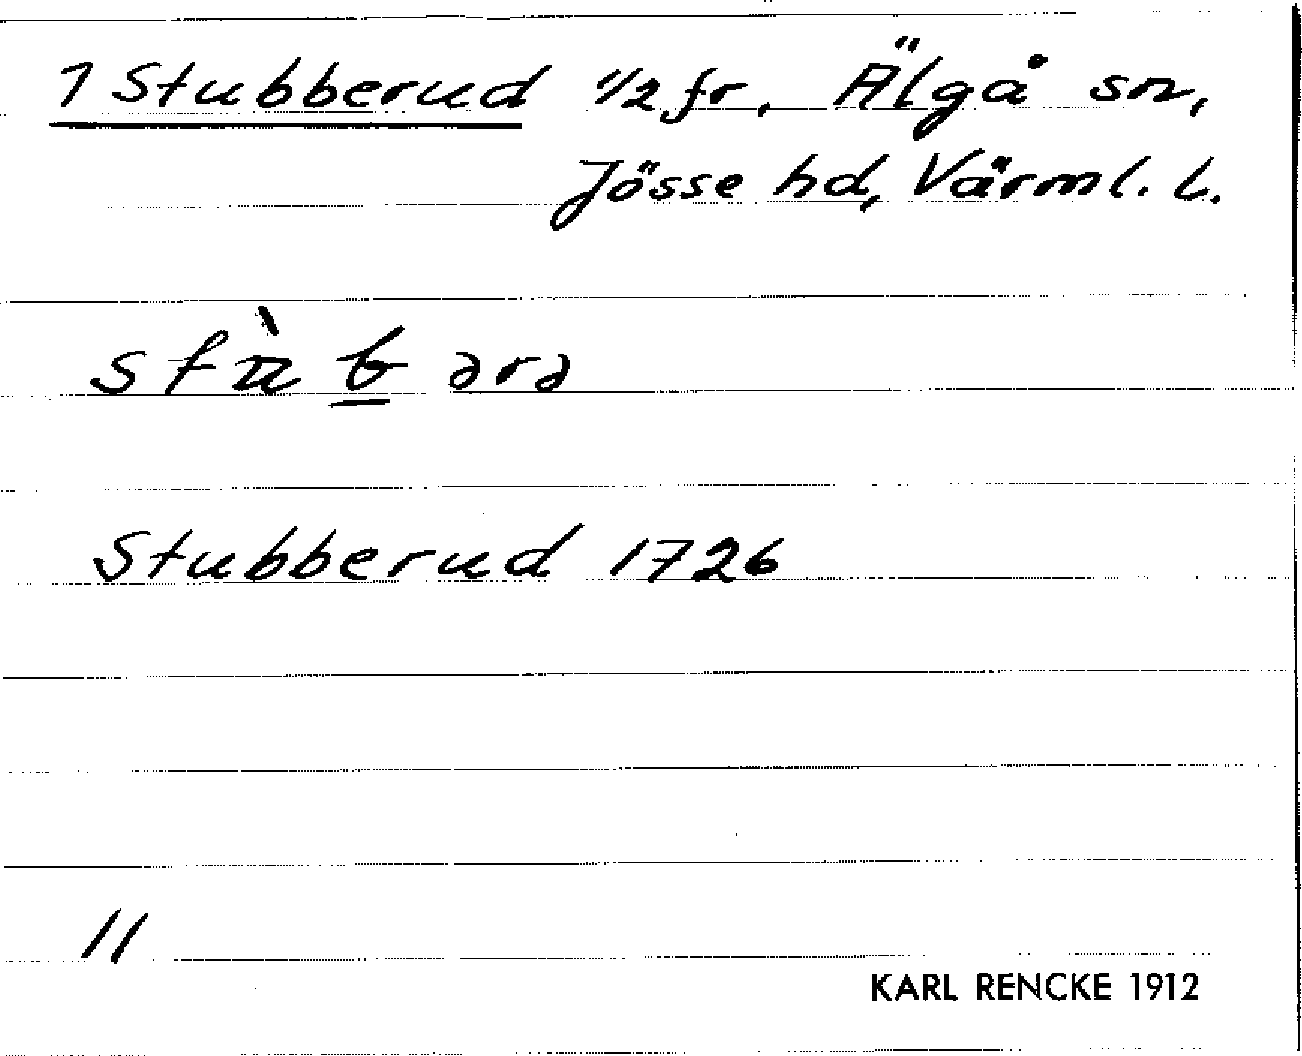 1 Stubberud 1/2 fr, Älgå sn,
Jösse hd, Värml. l.
stu̇̀b̲ərə
Stubberud 1726
11
KARL RENCKE 1912